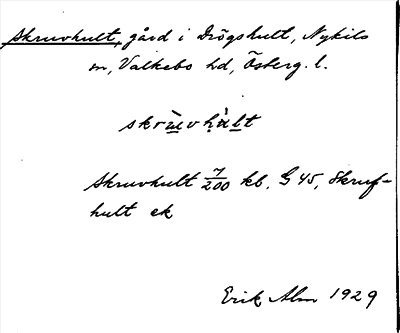 Skruvhult, gård i Drögshult, Nykils
sn, Valkebo hd, Österg. l.
skrùvhàlt
Skruvhult 7/200 kb. G 45, Skruf-
hult ek
Erik Alm 1929